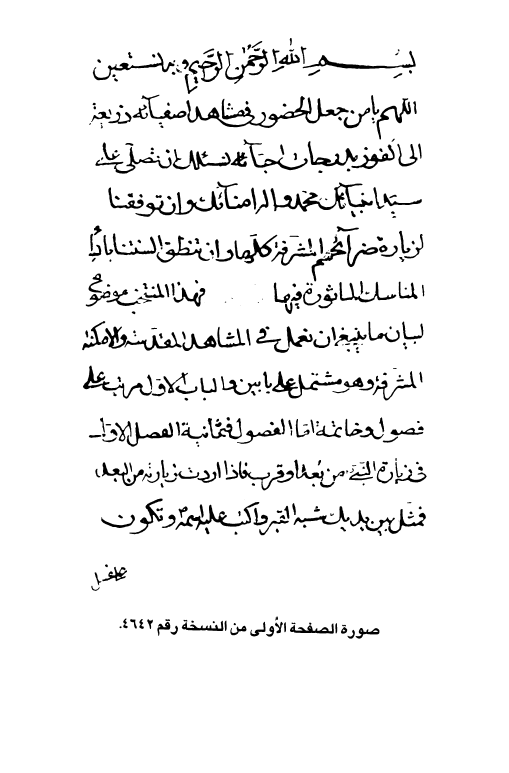 بسم الله الرحمن الرحيم وبه نستعين
اللهم يا من جعل الحضور في مشاهد اصفيائه ذريعة
الى الفوز بدرجات احبائه نسئلك ان تصلي على
سيد انبيائك محمد واله امنائك وان توفقنا
لزيارة ضرائحهم المشرفة كلها وان تنطق السنتنا باداء
المناسك الماثورة فيها فهذا المنتخب موضوع
لبيان ما ينبغي ان نعمل في المشاهد المقدسة والامكنة
المشرفة وهو مشتمل على بابين والباب الاول مرتب على
فصول وخاتمة اما الفصول فثمانية الفصل الاول
في زيارة النبي من بعد او قرب فاذا اردت زيارته من البعد
فمثل بين يديك شبه القبر واكتب عليه اسمه وتكون
صورة الصفحة الأولى من النسخة رقم ٤٦٤٢.